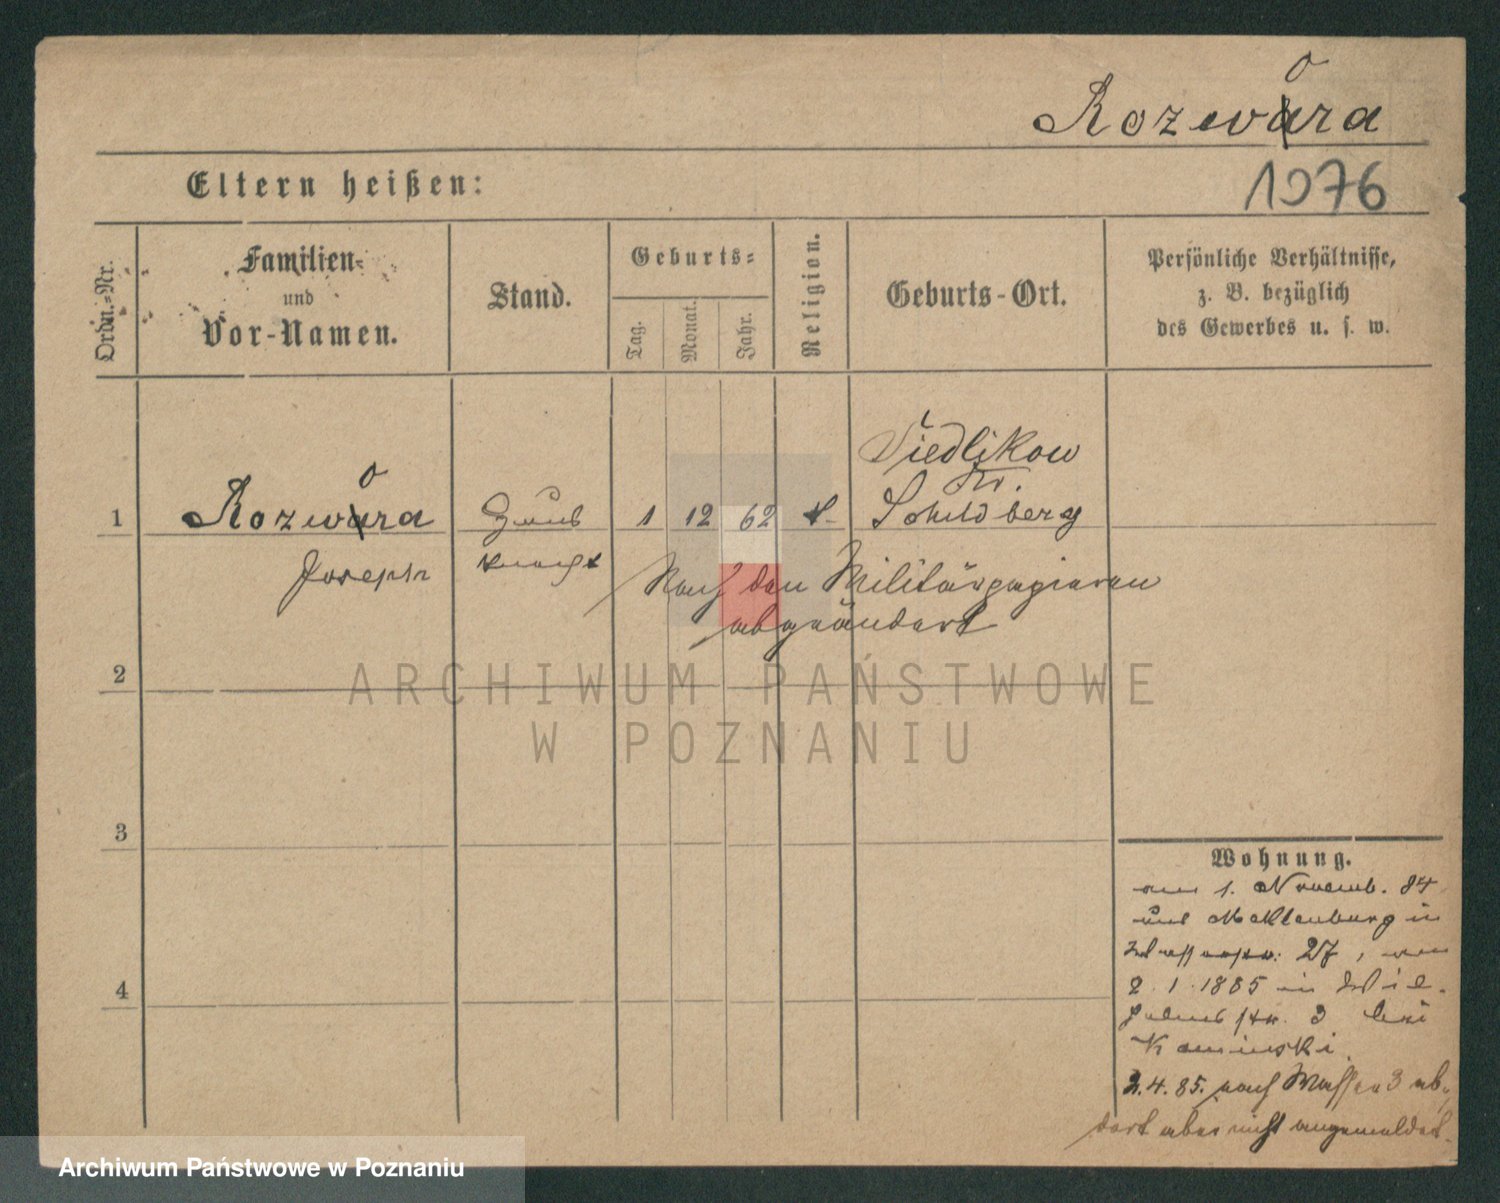 o
Rozwara
1076
Eltern heißen:
Ordn.-Nr.
Familien-
und
Vor-Namen.
Stand.
Geburts-
Tag.
Monat.
Jahr.
Religion.
Geburts-Ort.
Persönliche Verhältnisse,
z. B. bezüglich
des Gewerbes u. s. w.
1
o
Rozwara
Joseph
Haus
knecht
1 12 62
Siedlikow
Kr.
Schildberg
Nach den Militärpapieren
abgeändert
2
3
4
Wohnung.
am 1. Novemb. 84
aus Mecklenburg in
Wasserstr. 27, am
2.1.1885 in Wil-
helmstr. 3 bei
Kaminski.
2.4.85. nach Wasser 3 ab,
dort aber nicht angemeldet.
ARCHIWUM PAŃSTWOWE
W POZNANIU
Archiwum Państwowe w Poznaniu